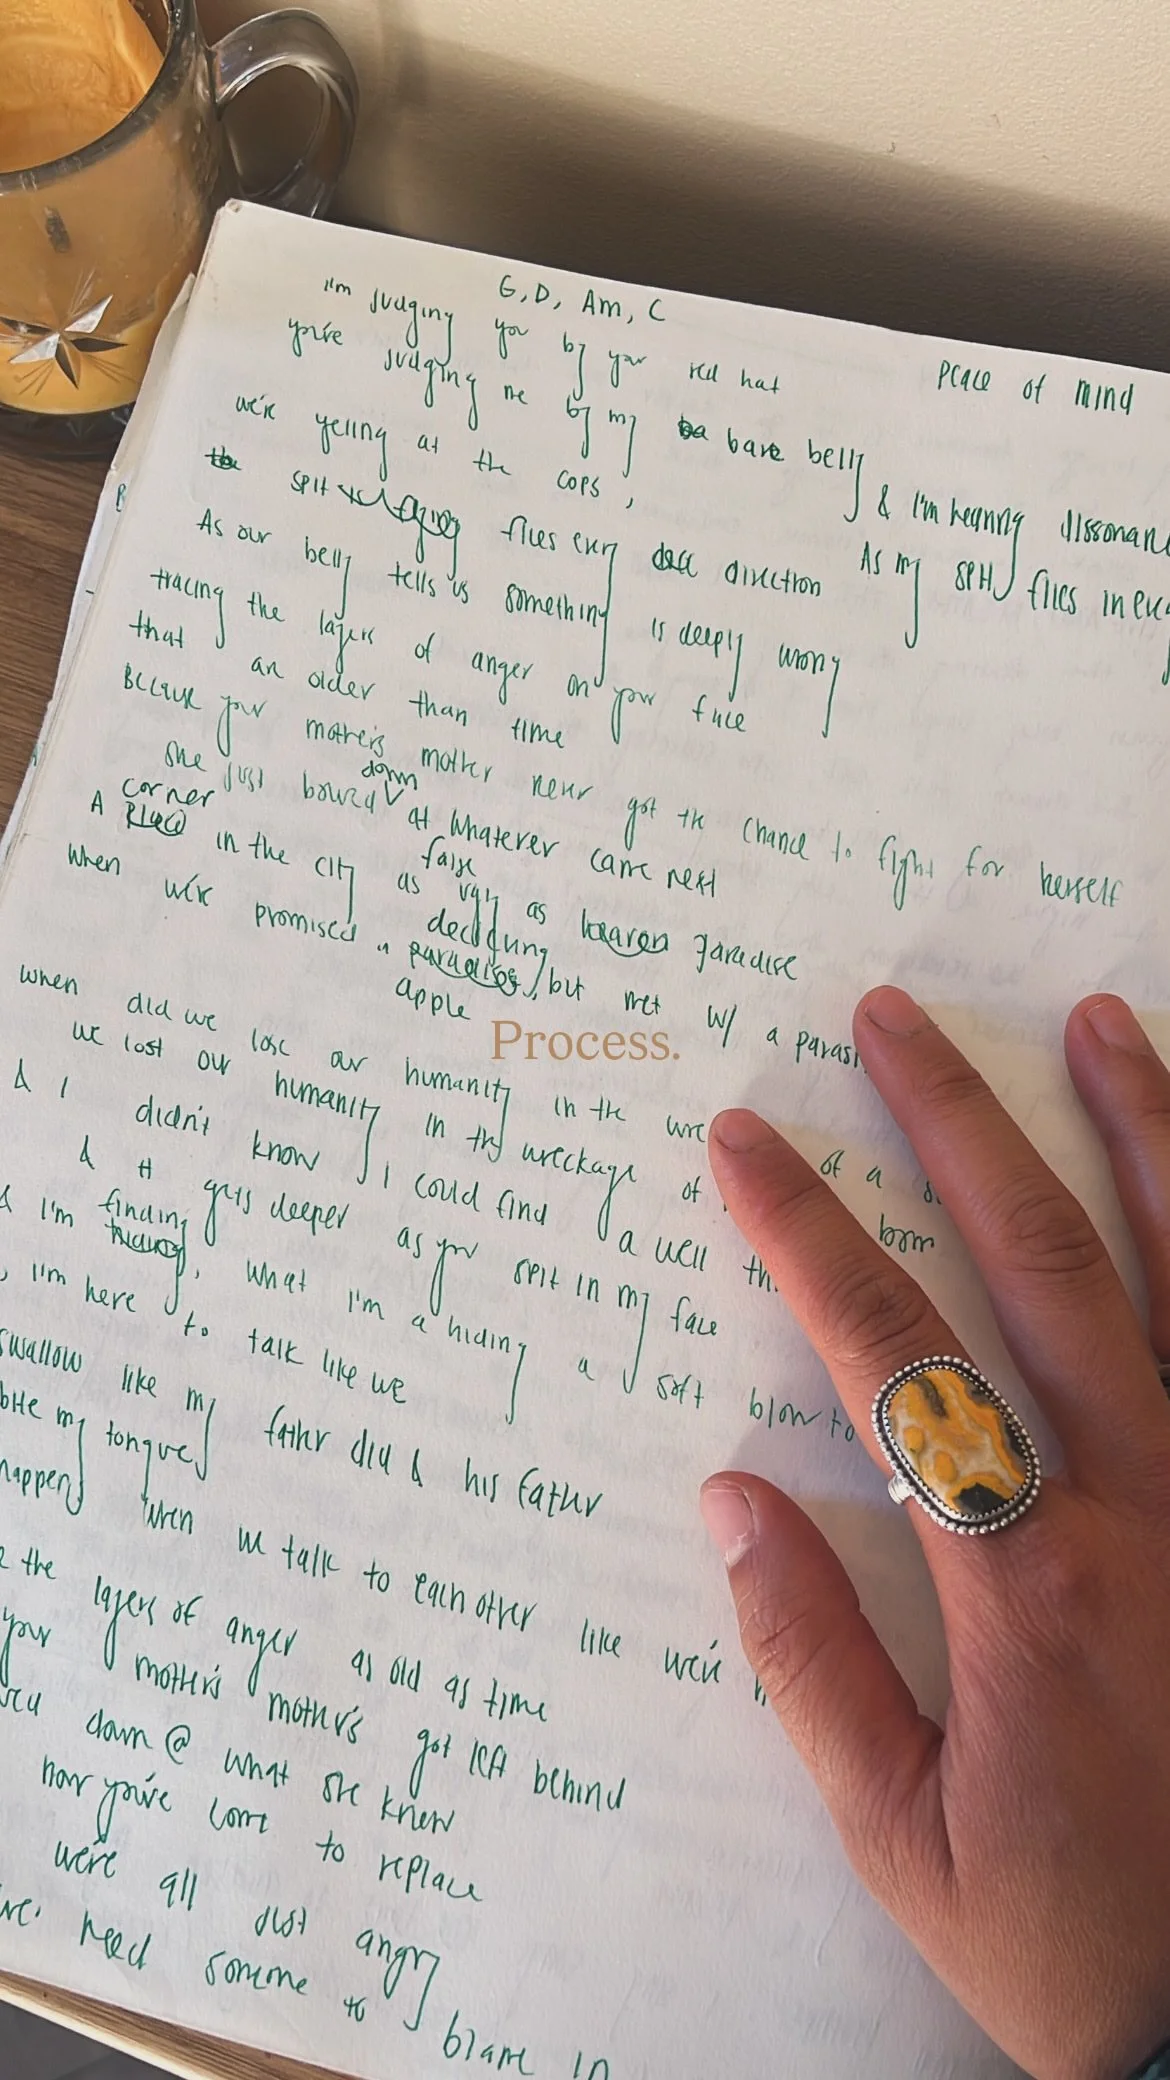 G, D, Am, C
I'm judging you by your red hat
peace of mind
you're judging me by my bare belly & I'm hearing
we're yelling at the cops,
As my spit flies in
spit flies every direction
As our belly tells us something is deeply wrong
tracing the layers of anger on your face
that an older than time
Because your mother's mother never got the chance to fight for herself
she just bowed down at whatever came next
A corner place in the city as false as heaven paradise
when we're promised a decaying paradise, but met w/ a
apple
Process.
when did we lose our humanity in the of a
we lost our humanity in the wreckage of born
& I didn't know I could find a well
& it gets deeper as you spit in my face
& I'm finding what I'm a hiding a soft blow to
I'm here to talk like we
swallow like my father did & his father
bite my tongue
happen when we talk to each other like we're
the layers of anger as old as time
your mother's mother's got left behind
down @ what she knew
now you've come to replace
we're all just angry
need someone to blame in